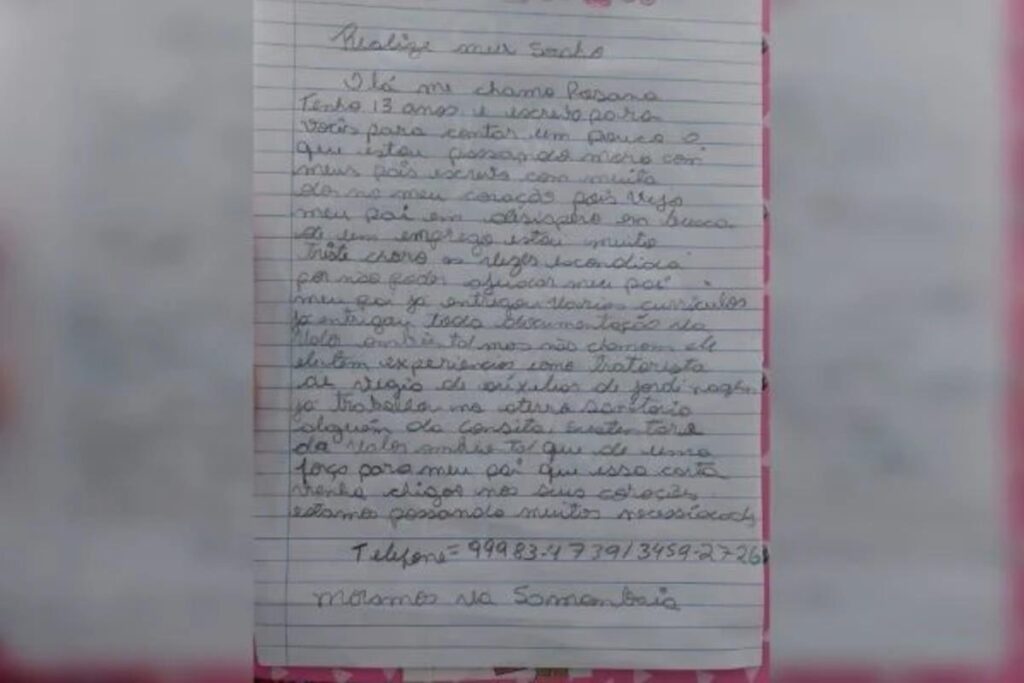 Realize meu Sonho
Olá me chamo Rosana
Tenho 13 anos e escrevo para
vocês para contar um pouco o
que estou passando moro com
meus pais escrevo com muita
dor no meu coração pois vejo
meu pai em desespero em busca
de um emprego estou muito
triste choro as vezes escondida
por não poder ajudar meu pai
meu pai ja entregou varios curriculos
ja entregou toda documentação na
Valor mas não chamam ele
ele tem experiencias como tratorista
de de jardinagem
ja trabalhou no aterro sanitario
alguém da
da Valor que de uma
força para meu pai que essa carta
venha chegar nos seus corações
estamos passando muitos necessidades
Telefone = 99983-4739 / 3459-2726
moramos na Samambaia